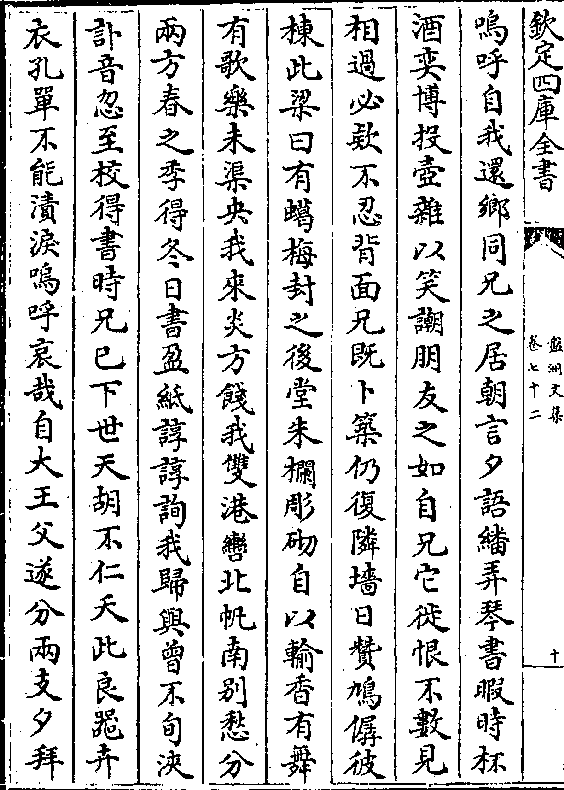 欽定四庫全書
盤洲文集
卷七十二
十
嗚呼自我還鄉同兄之居朝言夕語繙弄琴書暇時杯
酒奕博投壺雜以笑謿朋友之如自兄它徙恨不數見
相過必款不忍背面兄既卜築仍復隣墻日贊鳩僝彼
棟此梁曰有蠟梅封之後堂朱欄彫砌自以輸香有舞
有歌樂未渠央我來炎方餞我雙港轡北帆南別愁分
兩方春之季得冬日書盈紙諄諄詢我歸與曾不旬浹
訃音忽至校得書時兄已下世天胡不仁夭此良噐卉
衣孔單不能漬淚嗚呼哀哉自大王父遂分兩支夕拜